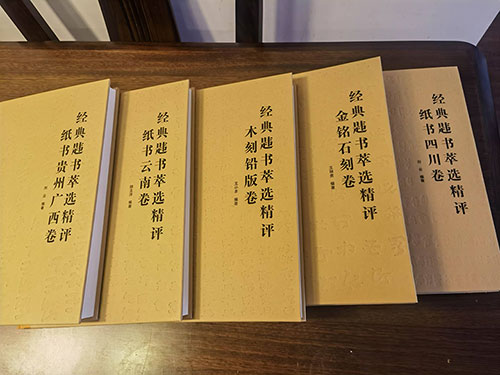 经典书萃选精评
纸书贵州、广西卷
编著
经典书萃选精评
纸书云南卷
编著
经典书萃选精评
木刻铅版卷
编著
经典书萃选精评
金铭石刻卷
编著
经典书萃选精评
纸书四川卷
编著